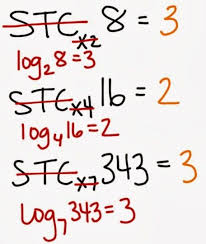 STCx2 8 = 3
log₂8=3
STCx4 16 = 2
log₄16=2
STCx7 343 = 3
log₇343=3